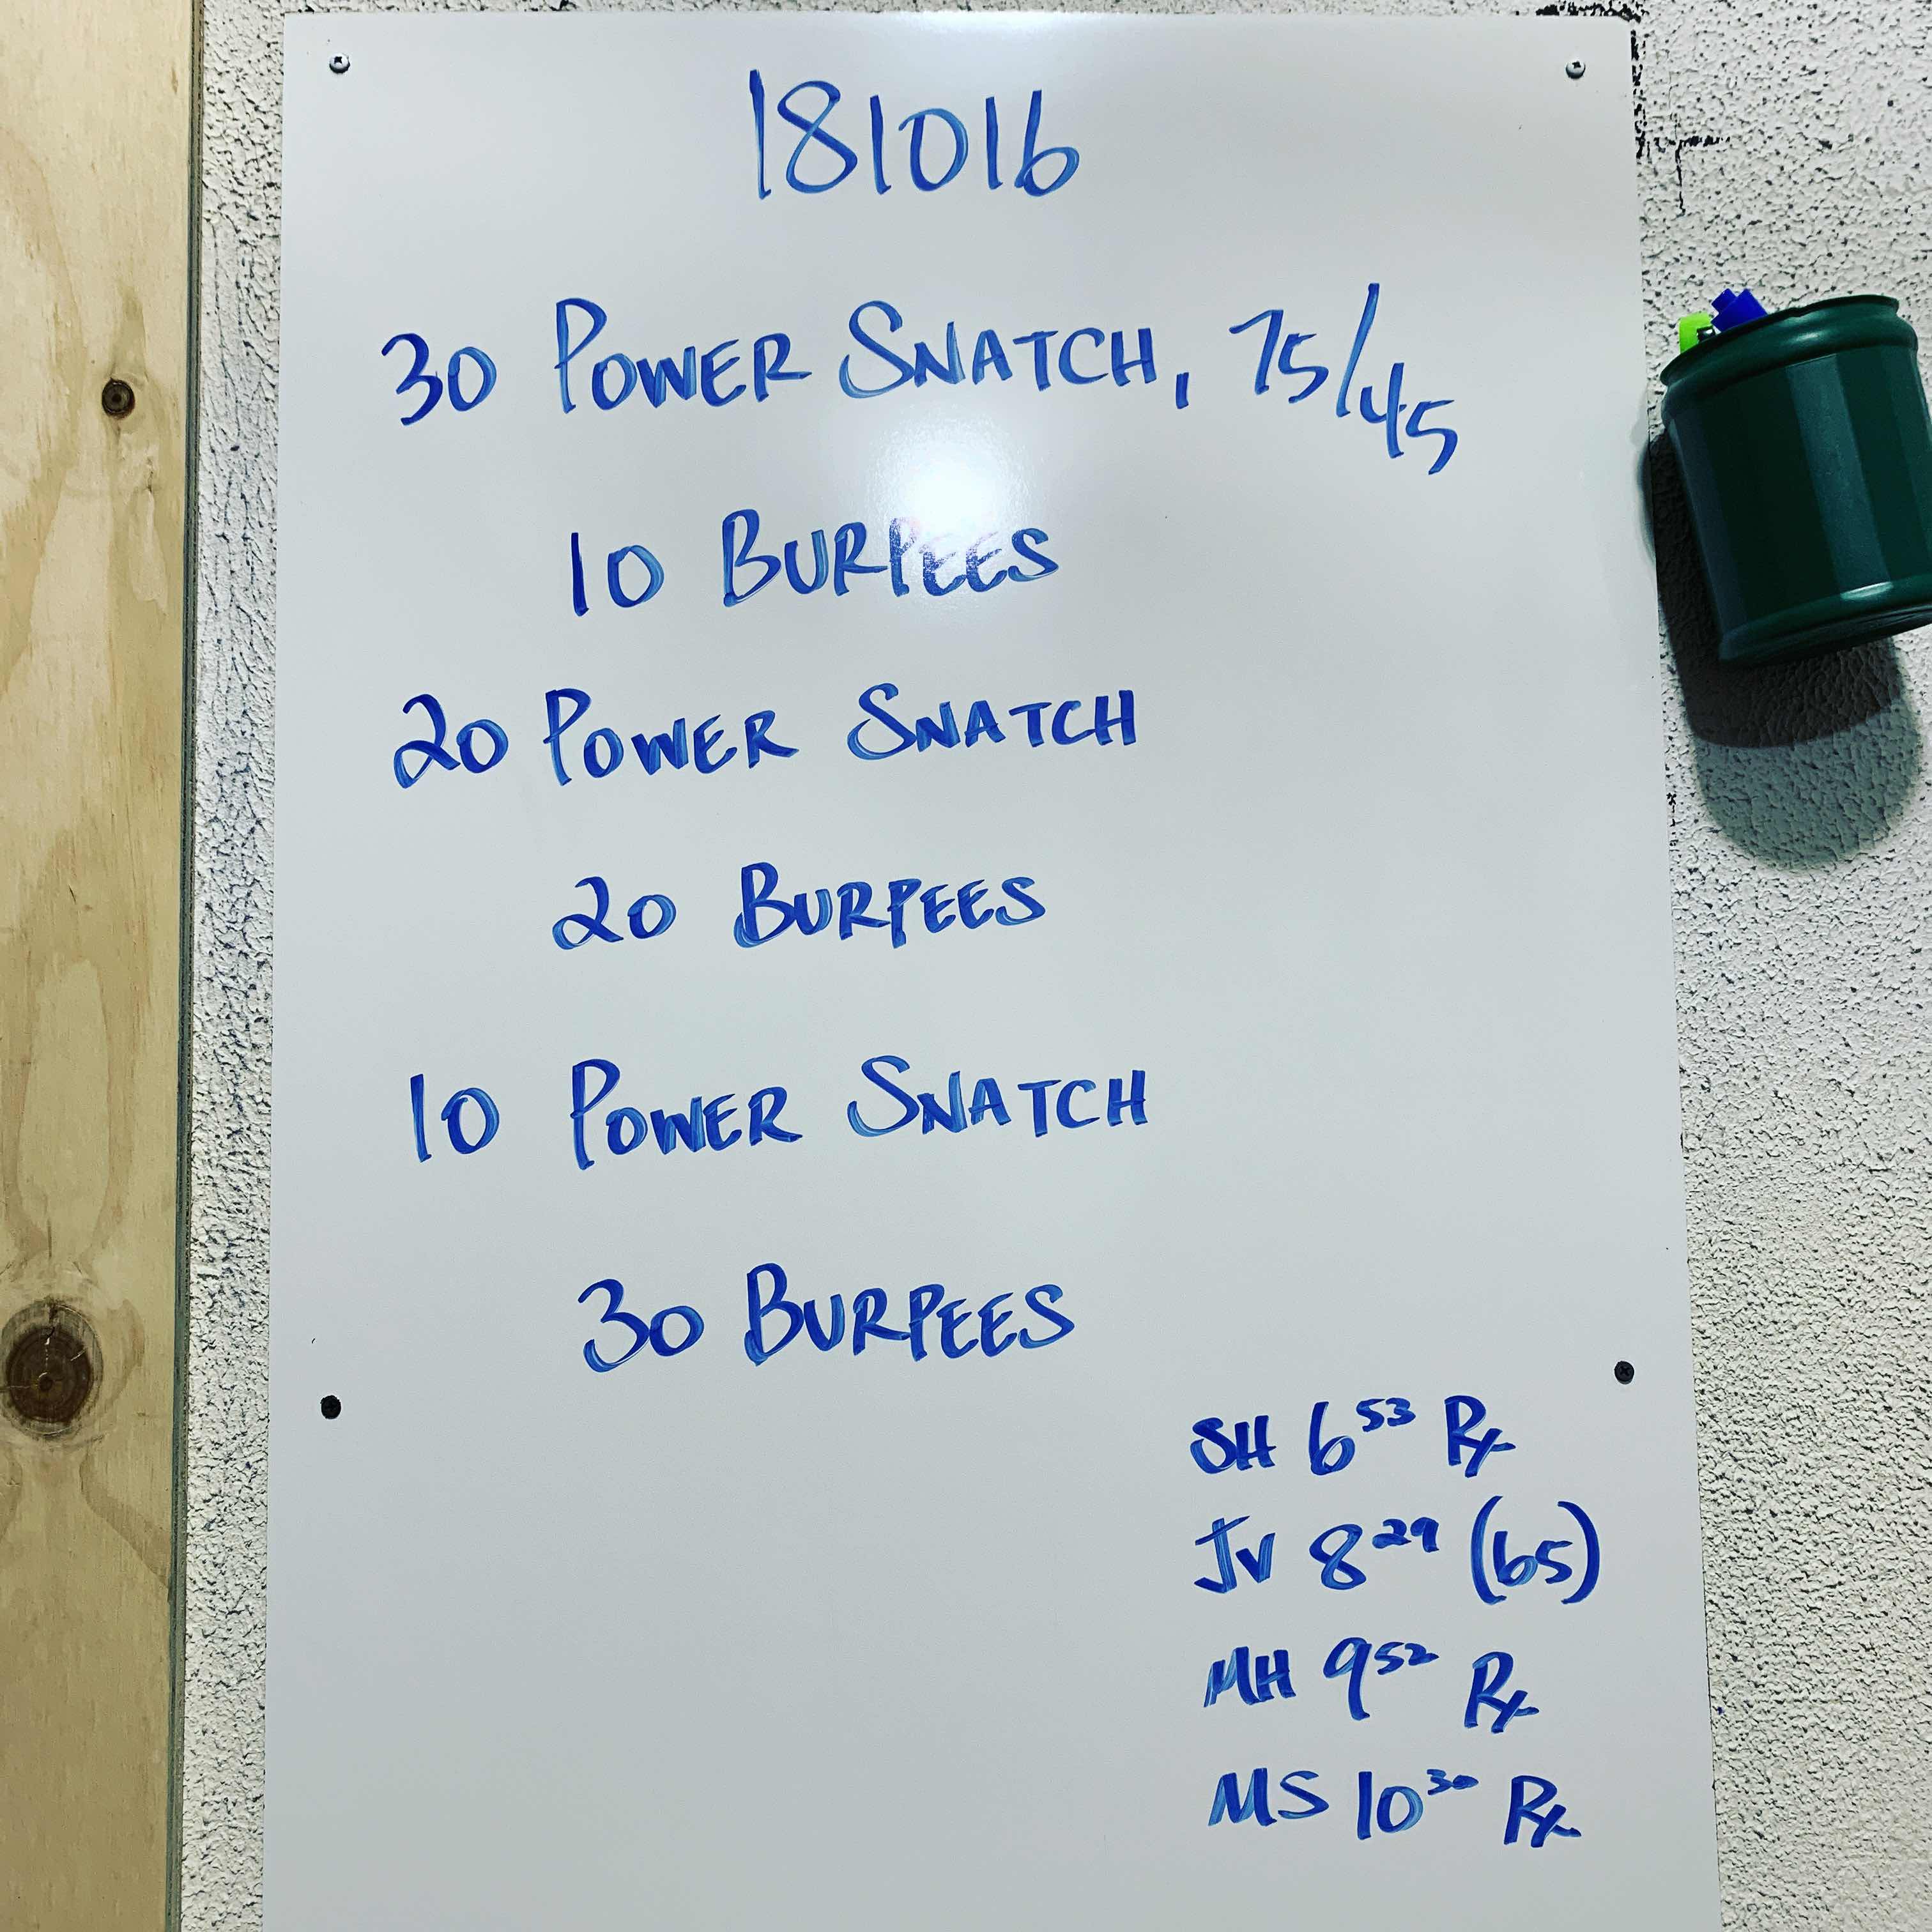 181016
30 POWER SNATCH, 75/45
10 BURPEES
20 POWER SNATCH
20 BURPEES
10 POWER SNATCH
30 BURPEES
SH 6 53 Rx
JV 8 29 (65)
MH 9 52 Rx
MS 10 30 Rx